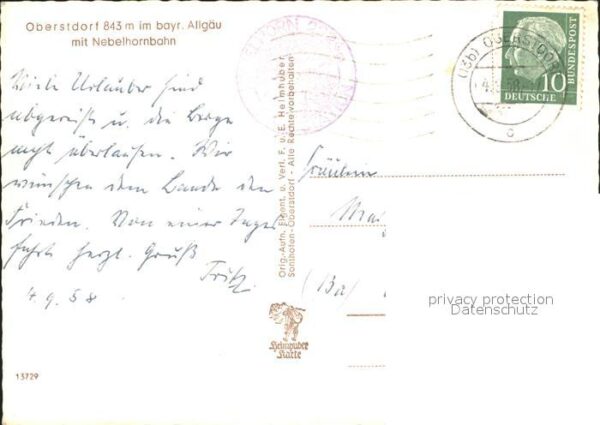 Oberstdorf 843 m im bayr. Allgäu
mit Nebelhornbahn
Viele Urlauber sind
abgereist u. die Berge
nicht überlaufen. Wir
wünschen dem Lande den
Frieden. Von einer Tages
fahrt herzl. Gruß
Fritz
4.9.58
13729
Orig.-Aufn. Eigent. u. Verl. F. u. E. Heimhuber
Sonthofen-Oberstdorf Alle Rechte vorbehalten
Heimhuber
Karte
(13b) OBERSTDORF
c
10
DEUTSCHE
BUNDESPOST
Fräulein
Ma
(Ba
privacy protection
Datenschutz